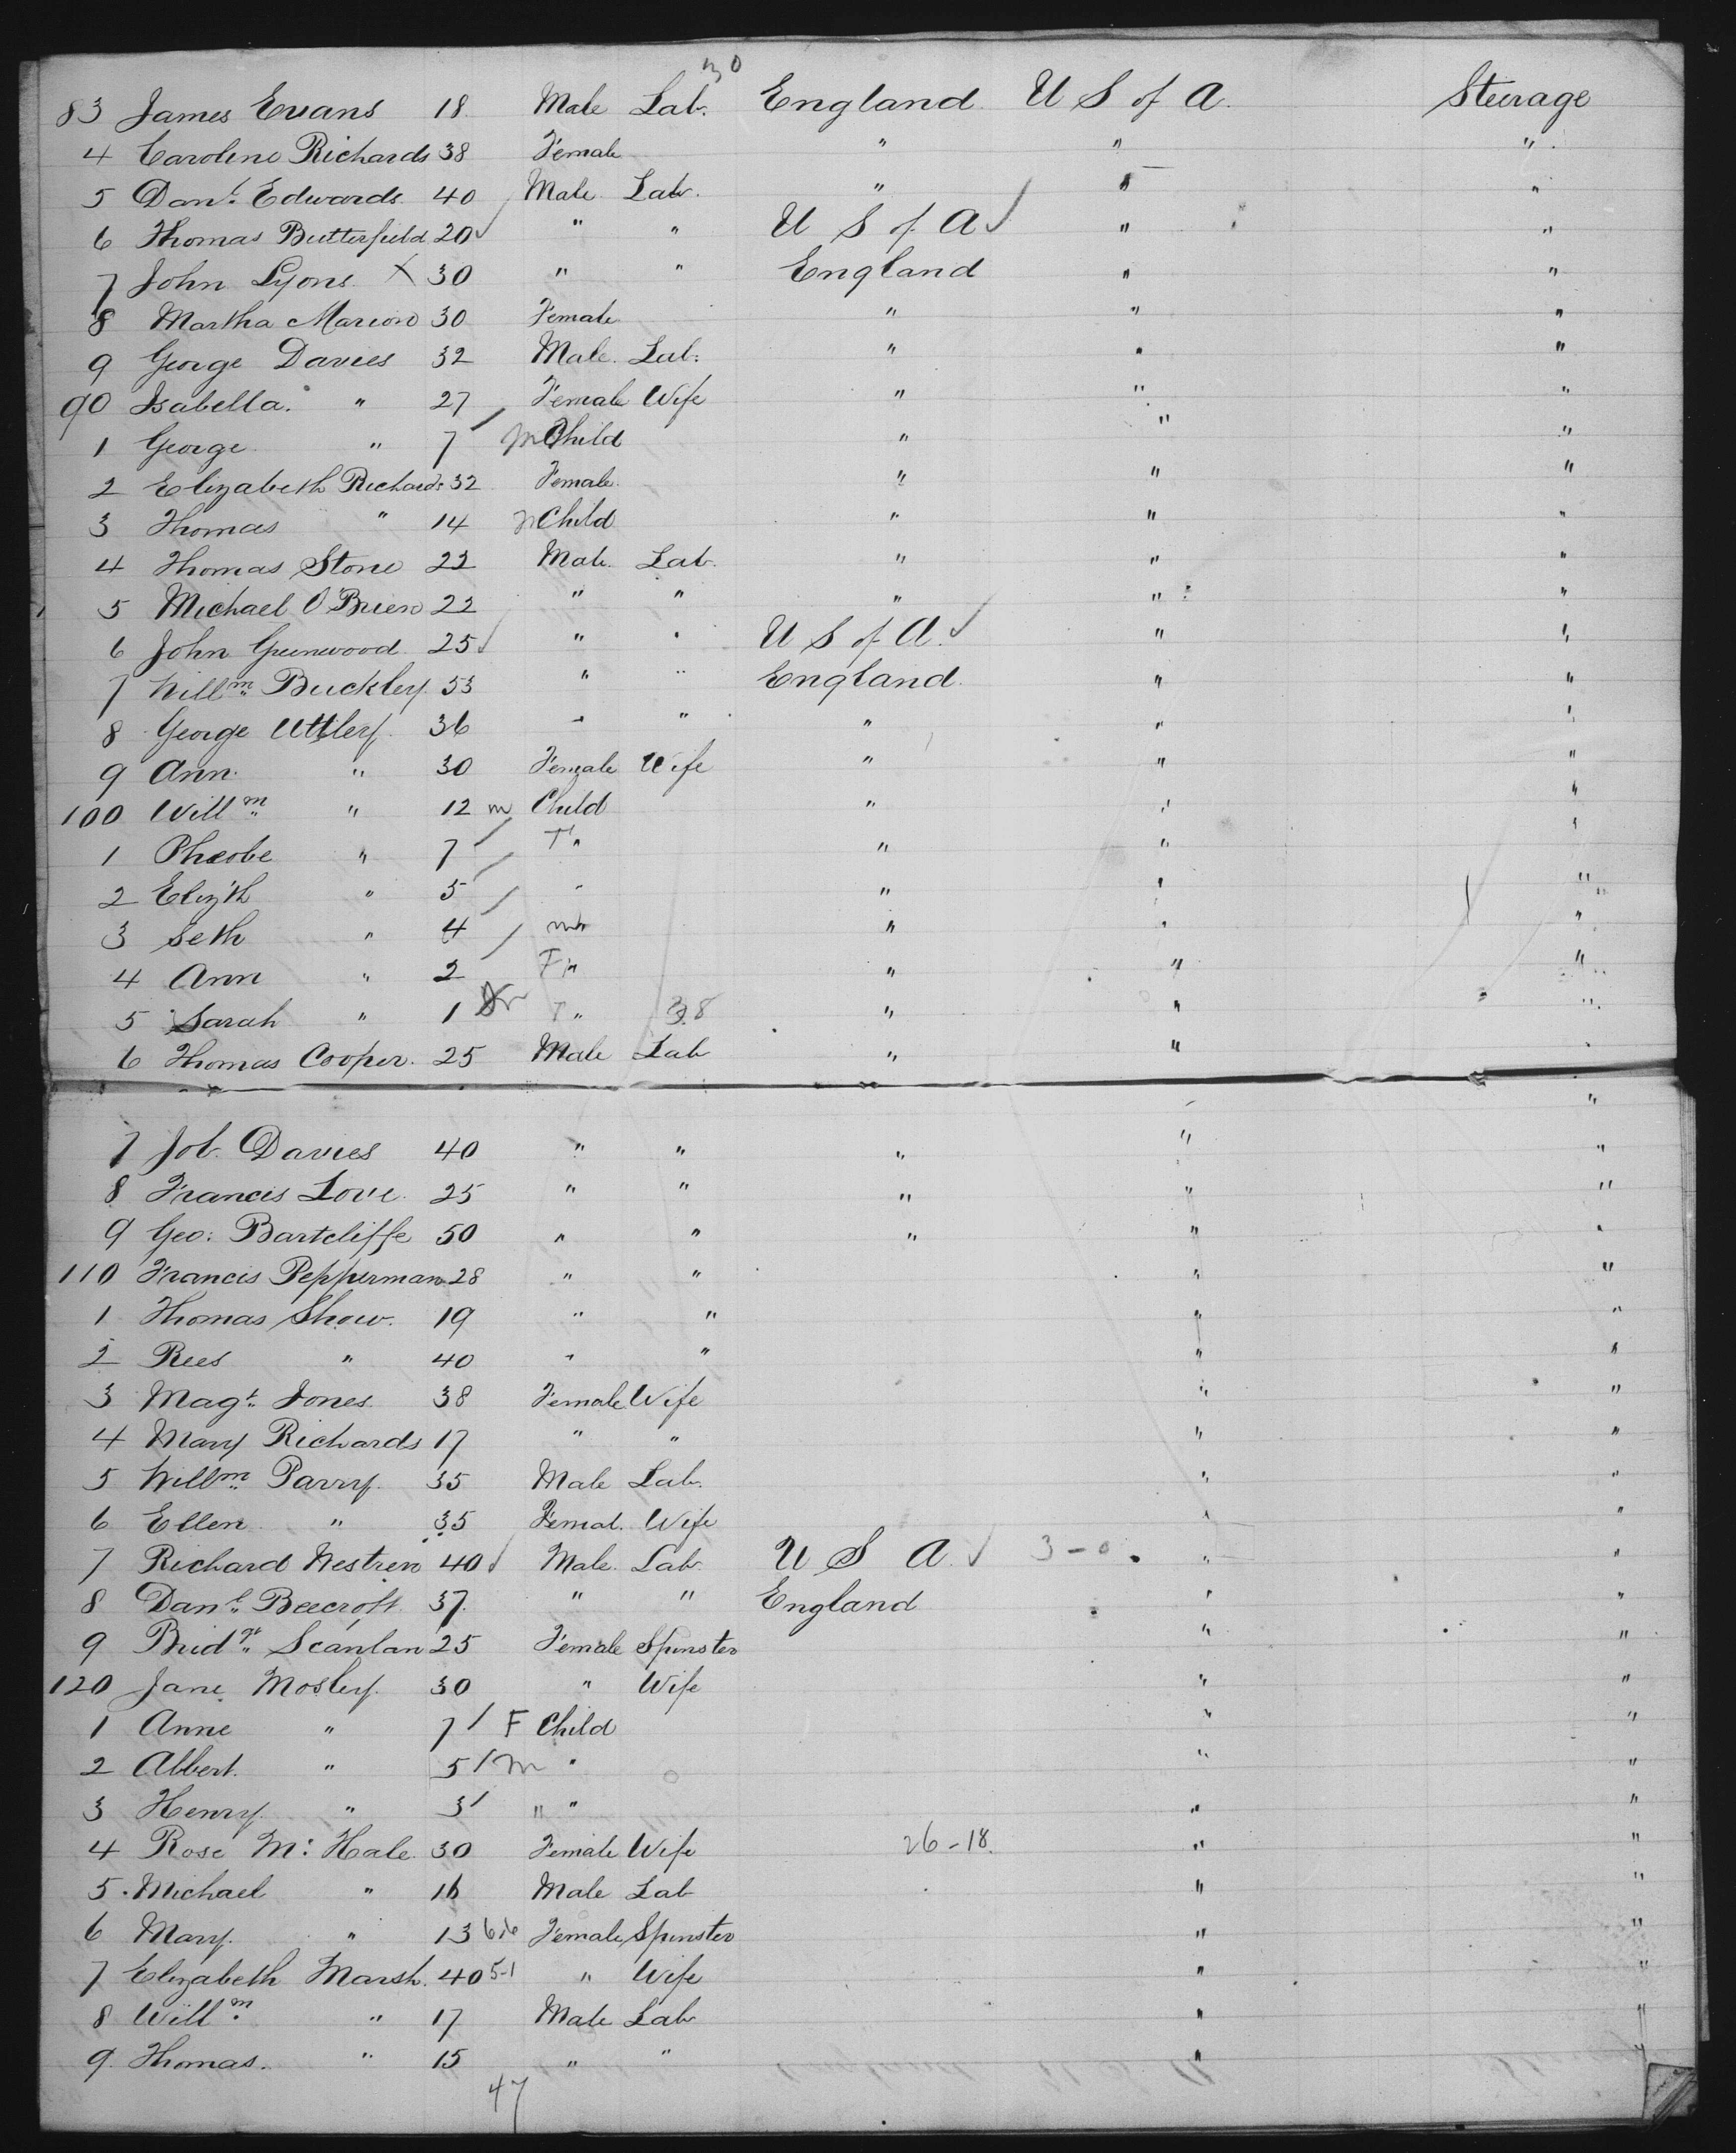 30
83 James Evans 18 Male Lab. England U S of A. Steerage
4 Caroline Richards 38 Female " " "
5 Danl. Edwards 40 Male Lab. " " "
6 Thomas Butterfield 20 ✓ " " U S of A ✓ " "
7 John Lyons X 30 " " England " "
8 Martha Marion 30 Female " " "
9 George Davies 32 Male Lab: " " "
90 Isabella " 27 Female Wife " " "
1 George " 7 / m Child " " "
2 Elizabeth Richards 32 Female " " "
3 Thomas " 14 m Child " " "
4 Thomas Stone 22 Male Lab. " " "
5 Michael O'Brien 22 " " " " "
6 John Greenwood 25 ✓ " " U S of A. ✓ " "
7 Willm. Buckley 53 " " England " "
8 George Uttley 36 " " " " "
9 Ann " 30 Female Wife " " "
100 Willm. " 12 m Child " " "
1 Pheobe " 7 / F " " " "
2 Eliz'th " 5 / " " " "
3 Seth " 4 / m " " " "
4 Ann " 2 / F " " " "
5 Sarah " 1 F " 38 " " "
6 Thomas Cooper 25 Male Lab " " "
7 Job Davies 40 " " " " "
8 Francis Love 25 " " " " "
9 Geo: Bartcliffe 50 " " " " "
110 Francis Pepperman 28 " " " "
1 Thomas Show 19 " " " "
2 Rees " 40 " " " "
3 Magt. Jones 38 Female Wife " "
4 Mary Richards 17 " " " "
5 Willm. Parry 35 Male Lab. " "
6 Ellen " 35 Femal. Wife " "
7 Richard Westren 40 ✓ Male Lab. U S A. ✓ 3-0 " "
8 Danl. Beecroft 37 " " England " "
9 Bridgt. Scanlan 25 Female Spinster " "
120 Jane Mosley 30 " Wife " "
1 Anne " 7 / F Child " "
2 Albert " 5 / m " " "
3 Henry " 3 / " " " "
4 Rose Mc: Hale 30 Female Wife 26-18. " "
5 Michael " 16 Male Lab " "
6 Mary " 13 Female Spinster " "
7 Elizabeth Marsh 40 5-1 " Wife " "
8 Willm. " 17 Male Lab " "
9 Thomas " 15 " " " "
47